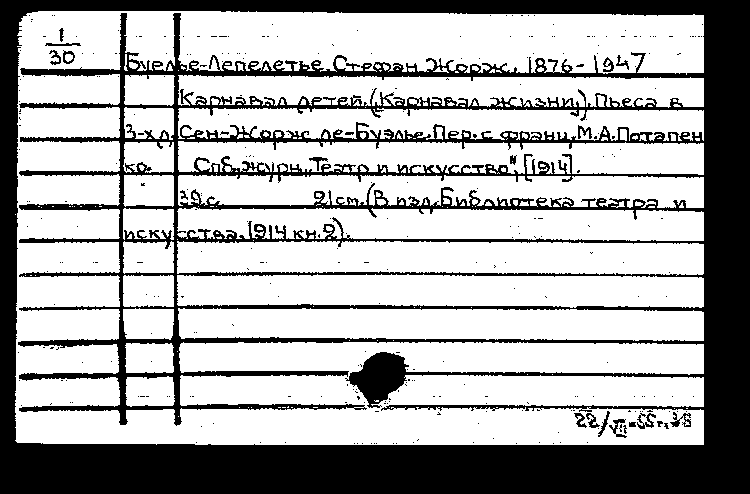 1
30
Буелье-Лепелетье, Стефан Жорж. 1876-1947
Карнавал детей. („Карнавал жизни„). Пьеса в
3-х д. Сен-Жорж де-Буэлье. Пер. с франц. М.А.Потапен
ко. Спб., журн. „Театр и искусство", [1914].
39 с. 21 cm. (В изд. Библиотека театра и
искусства. 1914 кн. 2).
22/VII-55г.